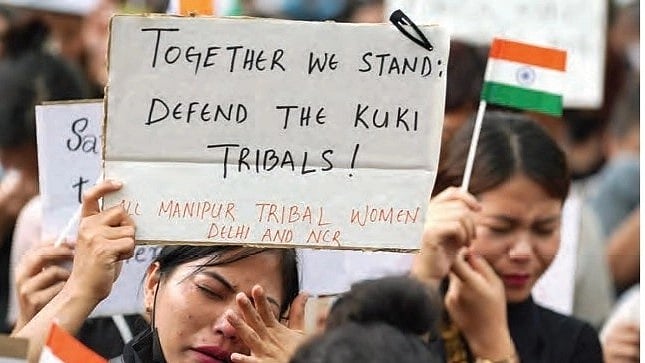 TOGETHER WE STAND:
DEFEND THE KUKI
TRIBALS!
ALL MANIPUR TRIBAL WOMEN
DELHI AND NCR
Sa